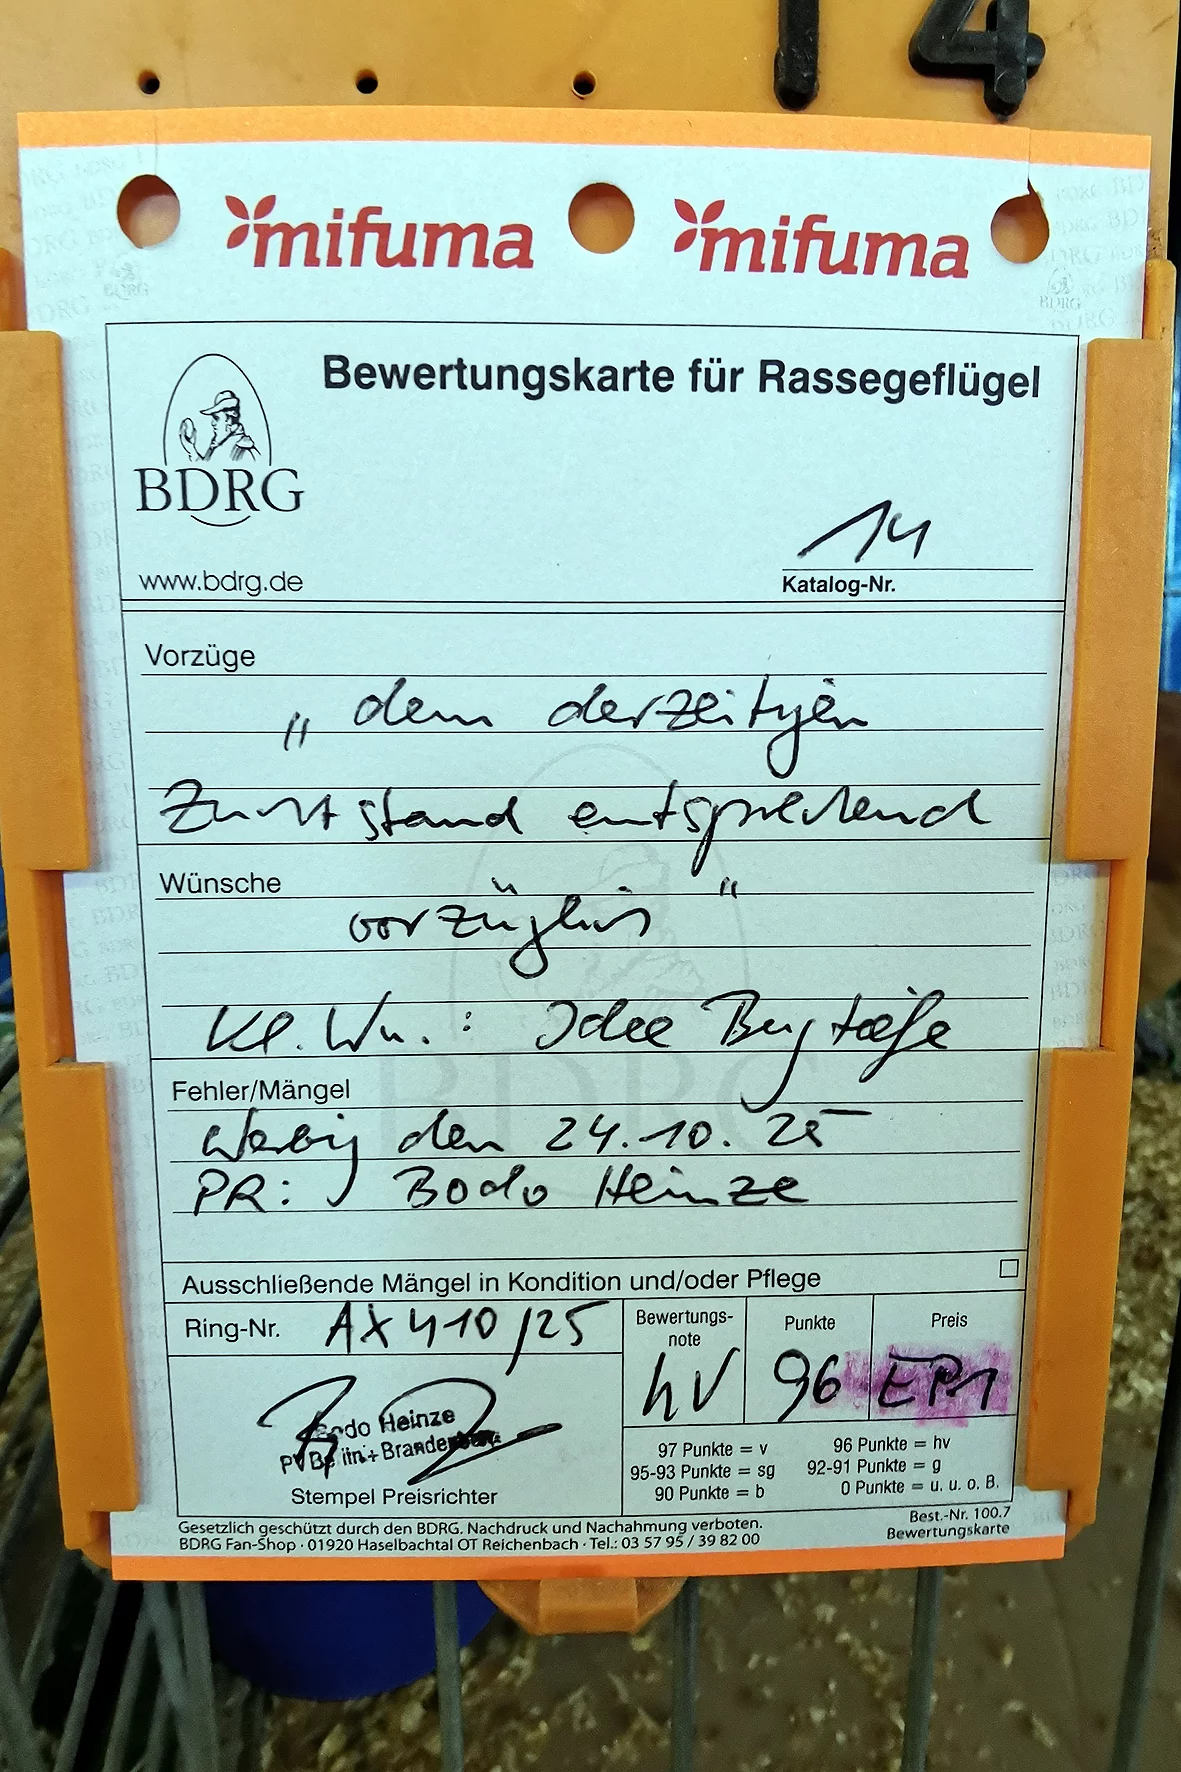 14
mifuma mifuma
Bewertungskarte für Rassegeflügel
BDRG
www.bdrg.de
14
Katalog-Nr.
Vorzüge
„ dem derzeitigen
Zuchtstand entsprechend
Wünsche
vorzüglich “
Kl. Wu.: Idee Brusttiefe
Fehler/Mängel
Werbig den 24.10.25
PR: Bodo Heinze
Ausschließende Mängel in Kondition und/oder Pflege
Ring-Nr. AX 410/25
Bewertungs-
note
Punkte
Preis
hv 96 EP1
Bodo Heinze
Stempel Preisrichter
97 Punkte = v 96 Punkte = hv
95-93 Punkte = sg 92-91 Punkte = g
90 Punkte = b 0 Punkte = u. u. o. B.
Gesetzlich geschützt durch den BDRG. Nachdruck und Nachahmung verboten.
BDRG Fan-Shop · 01920 Haselbachtal OT Reichenbach · Tel.: 03 57 95 / 39 82 00
Best.-Nr. 100.7
Bewertungskarte